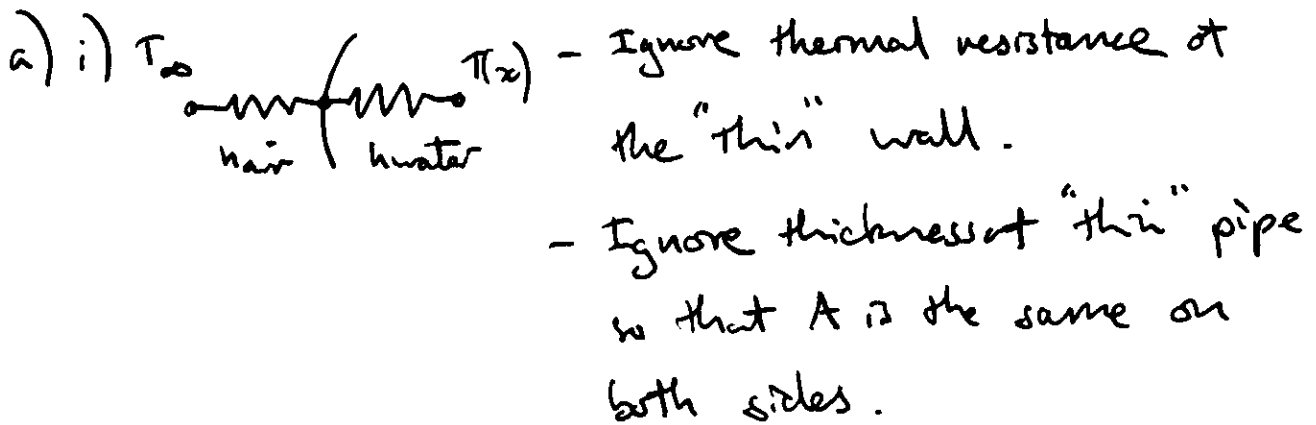 a) i) T∞ T(x) - Ignore thermal resistance of
hair hwater the "thin" wall.
- Ignore thickness of "thin" pipe
so that A is the same on
both sides.